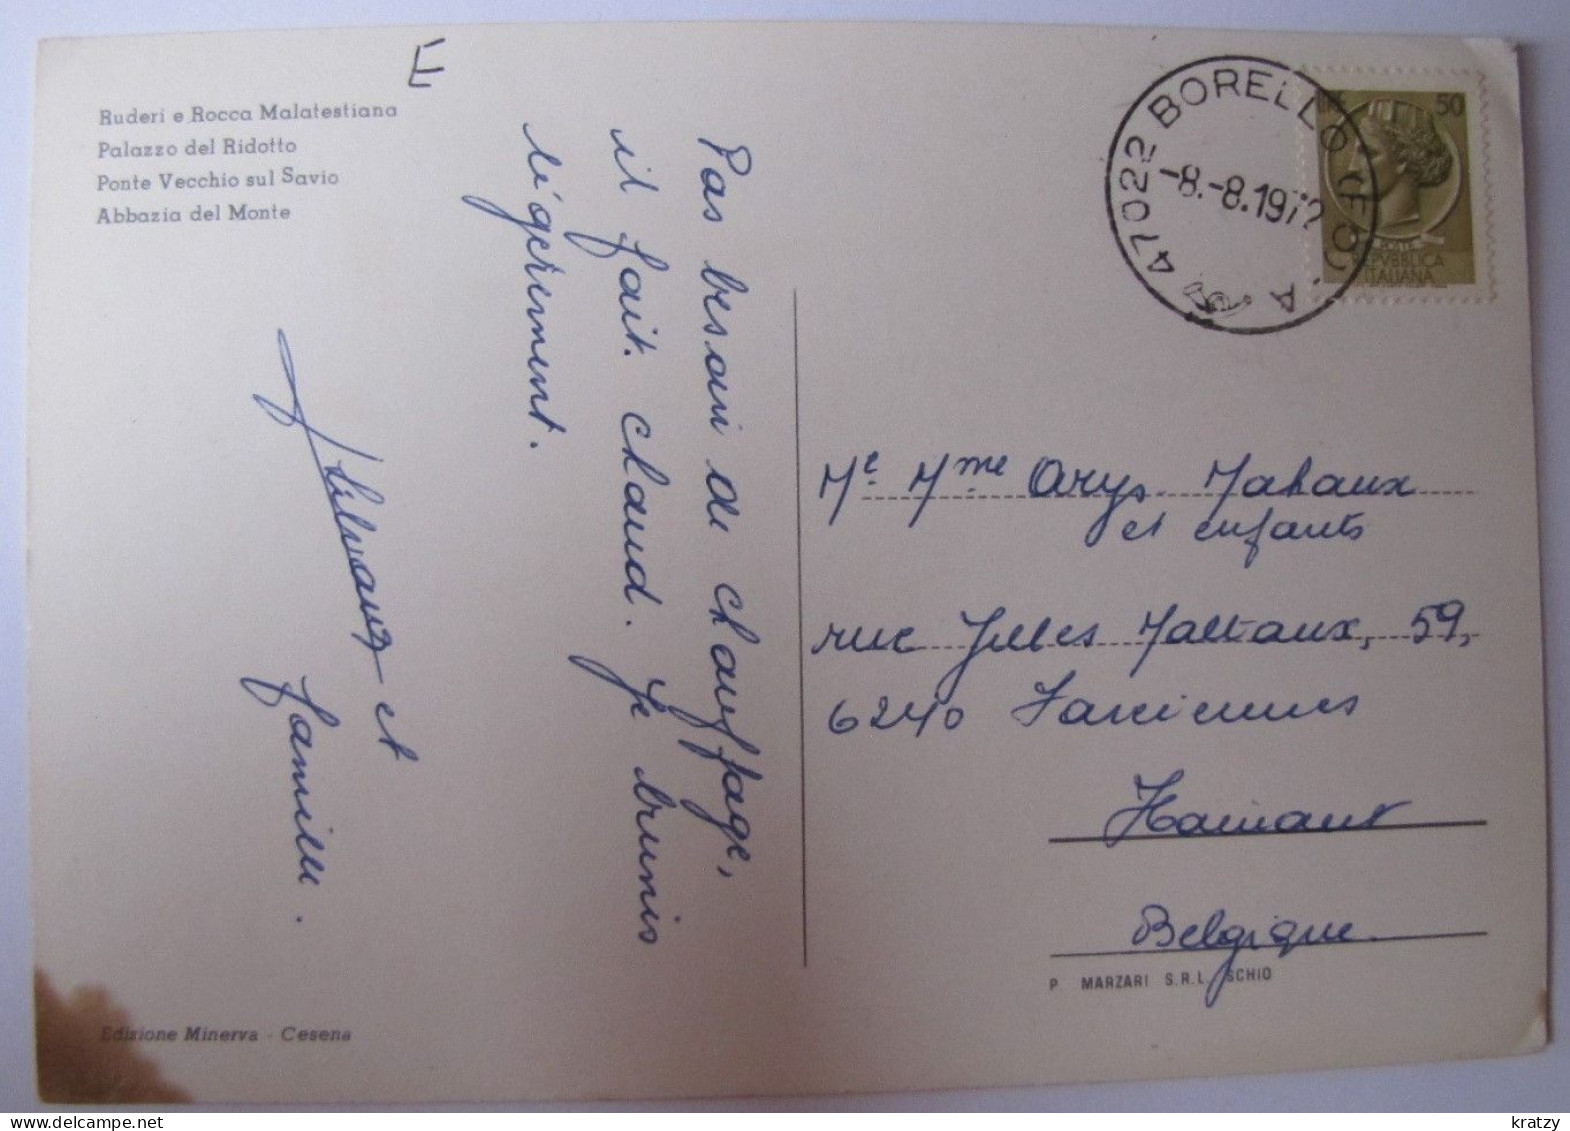 E
Ruderi e Rocca Malatestiana
Palazzo del Ridotto
Ponte Vecchio sul Savio
Abbazia del Monte
Pas besoin de chauffage,
il fait chaud. Je brunis
légèrement.
et
famille.
47022 BORELLO
-8.-8.1972
A
50
POSTE
REPVBBLICA
ITALIANA
Mr Mme Arys Mahaux
et enfants
rue Jules Mattaux, 59,
6240 Farciennes
Hainaut
Belgique
P. MARZARI S.R.L. SCHIO
Edizione Minerva - Cesena
kratzy